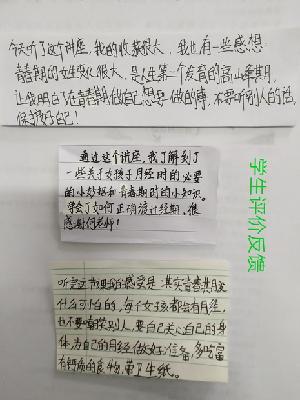 今天听了这个讲座,我的收获很大,我也有一些感想
青春期的女性变化很大,是人生第一个发育的高山峰期,
让我明白了在青春期做自己想要做的事,不要听别人的话,
保护好自己!
通过这个讲座,我了解到了
一些关于女孩子月经时的必要
的小妙招和青春期时的小知识。
学会了如何正确渡过经期,很
感谢何老师!
听完这节课的感受是:其实青春期没
什么可怕的,每个女孩都会有月经,
也不要嘲笑别人,要自己关心自己的身
体,为自己的月经做好准备,多吃富
有钙质的食物,带卫生纸。
学生评价反馈